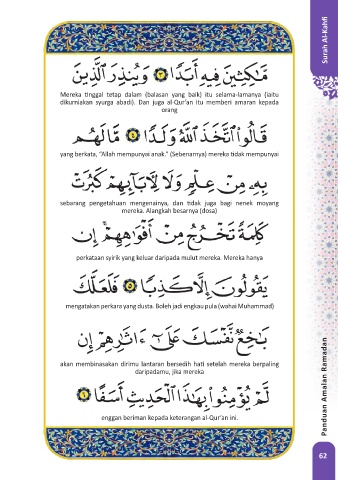 Surah Al-Kahfi
مَّٰكِثِينَ فِيهِ أَبَدًا ٣ وَيُنذِرَ ٱلَّذِينَ
Mereka tinggal tetap dalam (balasan yang baik) itu selama-lamanya (iaitu
dikurniakan syurga abadi). Dan juga al-Qur’an itu memberi amaran kepada
orang
قَالُوا۟ ٱتَّخَذَ ٱللَّهُ وَلَدًا ٤ مَّا لَهُم
yang berkata, “Allah mempunyai anak.” (Sebenarnya) mereka tidak mempunyai
بِهِۦ مِنْ عِلْمٍ وَلَا لِءَابَآئِهِمْ كَبُرَتْ
sebarang pengetahuan mengenainya, dan tidak juga bagi nenek moyang
mereka. Alangkah besarnya (dosa)
كَلِمَةً تَخْرُجُ مِنْ أَفْوَٰهِهِمْ ۚ إِن
perkataan syirik yang keluar daripada mulut mereka. Mereka hanya
يَقُولُونَ إِلَّا كَذِبًا ٥ فَلَعَلَّكَ
mengatakan perkara yang dusta. Boleh jadi engkau pula (wahai Muhammad)
بَٰخِعٌ نَّفْسَكَ عَلَىٰٓ ءَاثَٰرِهِمْ إِن
akan membinasakan dirimu lantaran bersedih hati setelah mereka berpaling
daripadamu, jika mereka
لَّمْ يُؤْمِنُوا۟ بِهَٰذَا ٱلْحَدِيثِ أَسَفًا ٦
enggan beriman kepada keterangan al-Qur’an ini.
Panduan Amalan Ramadan
62